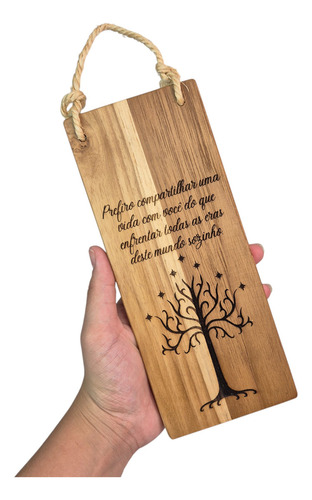 Prefiro compartilhar uma
vida com você do que
enfrentar todas as eras
deste mundo sozinho